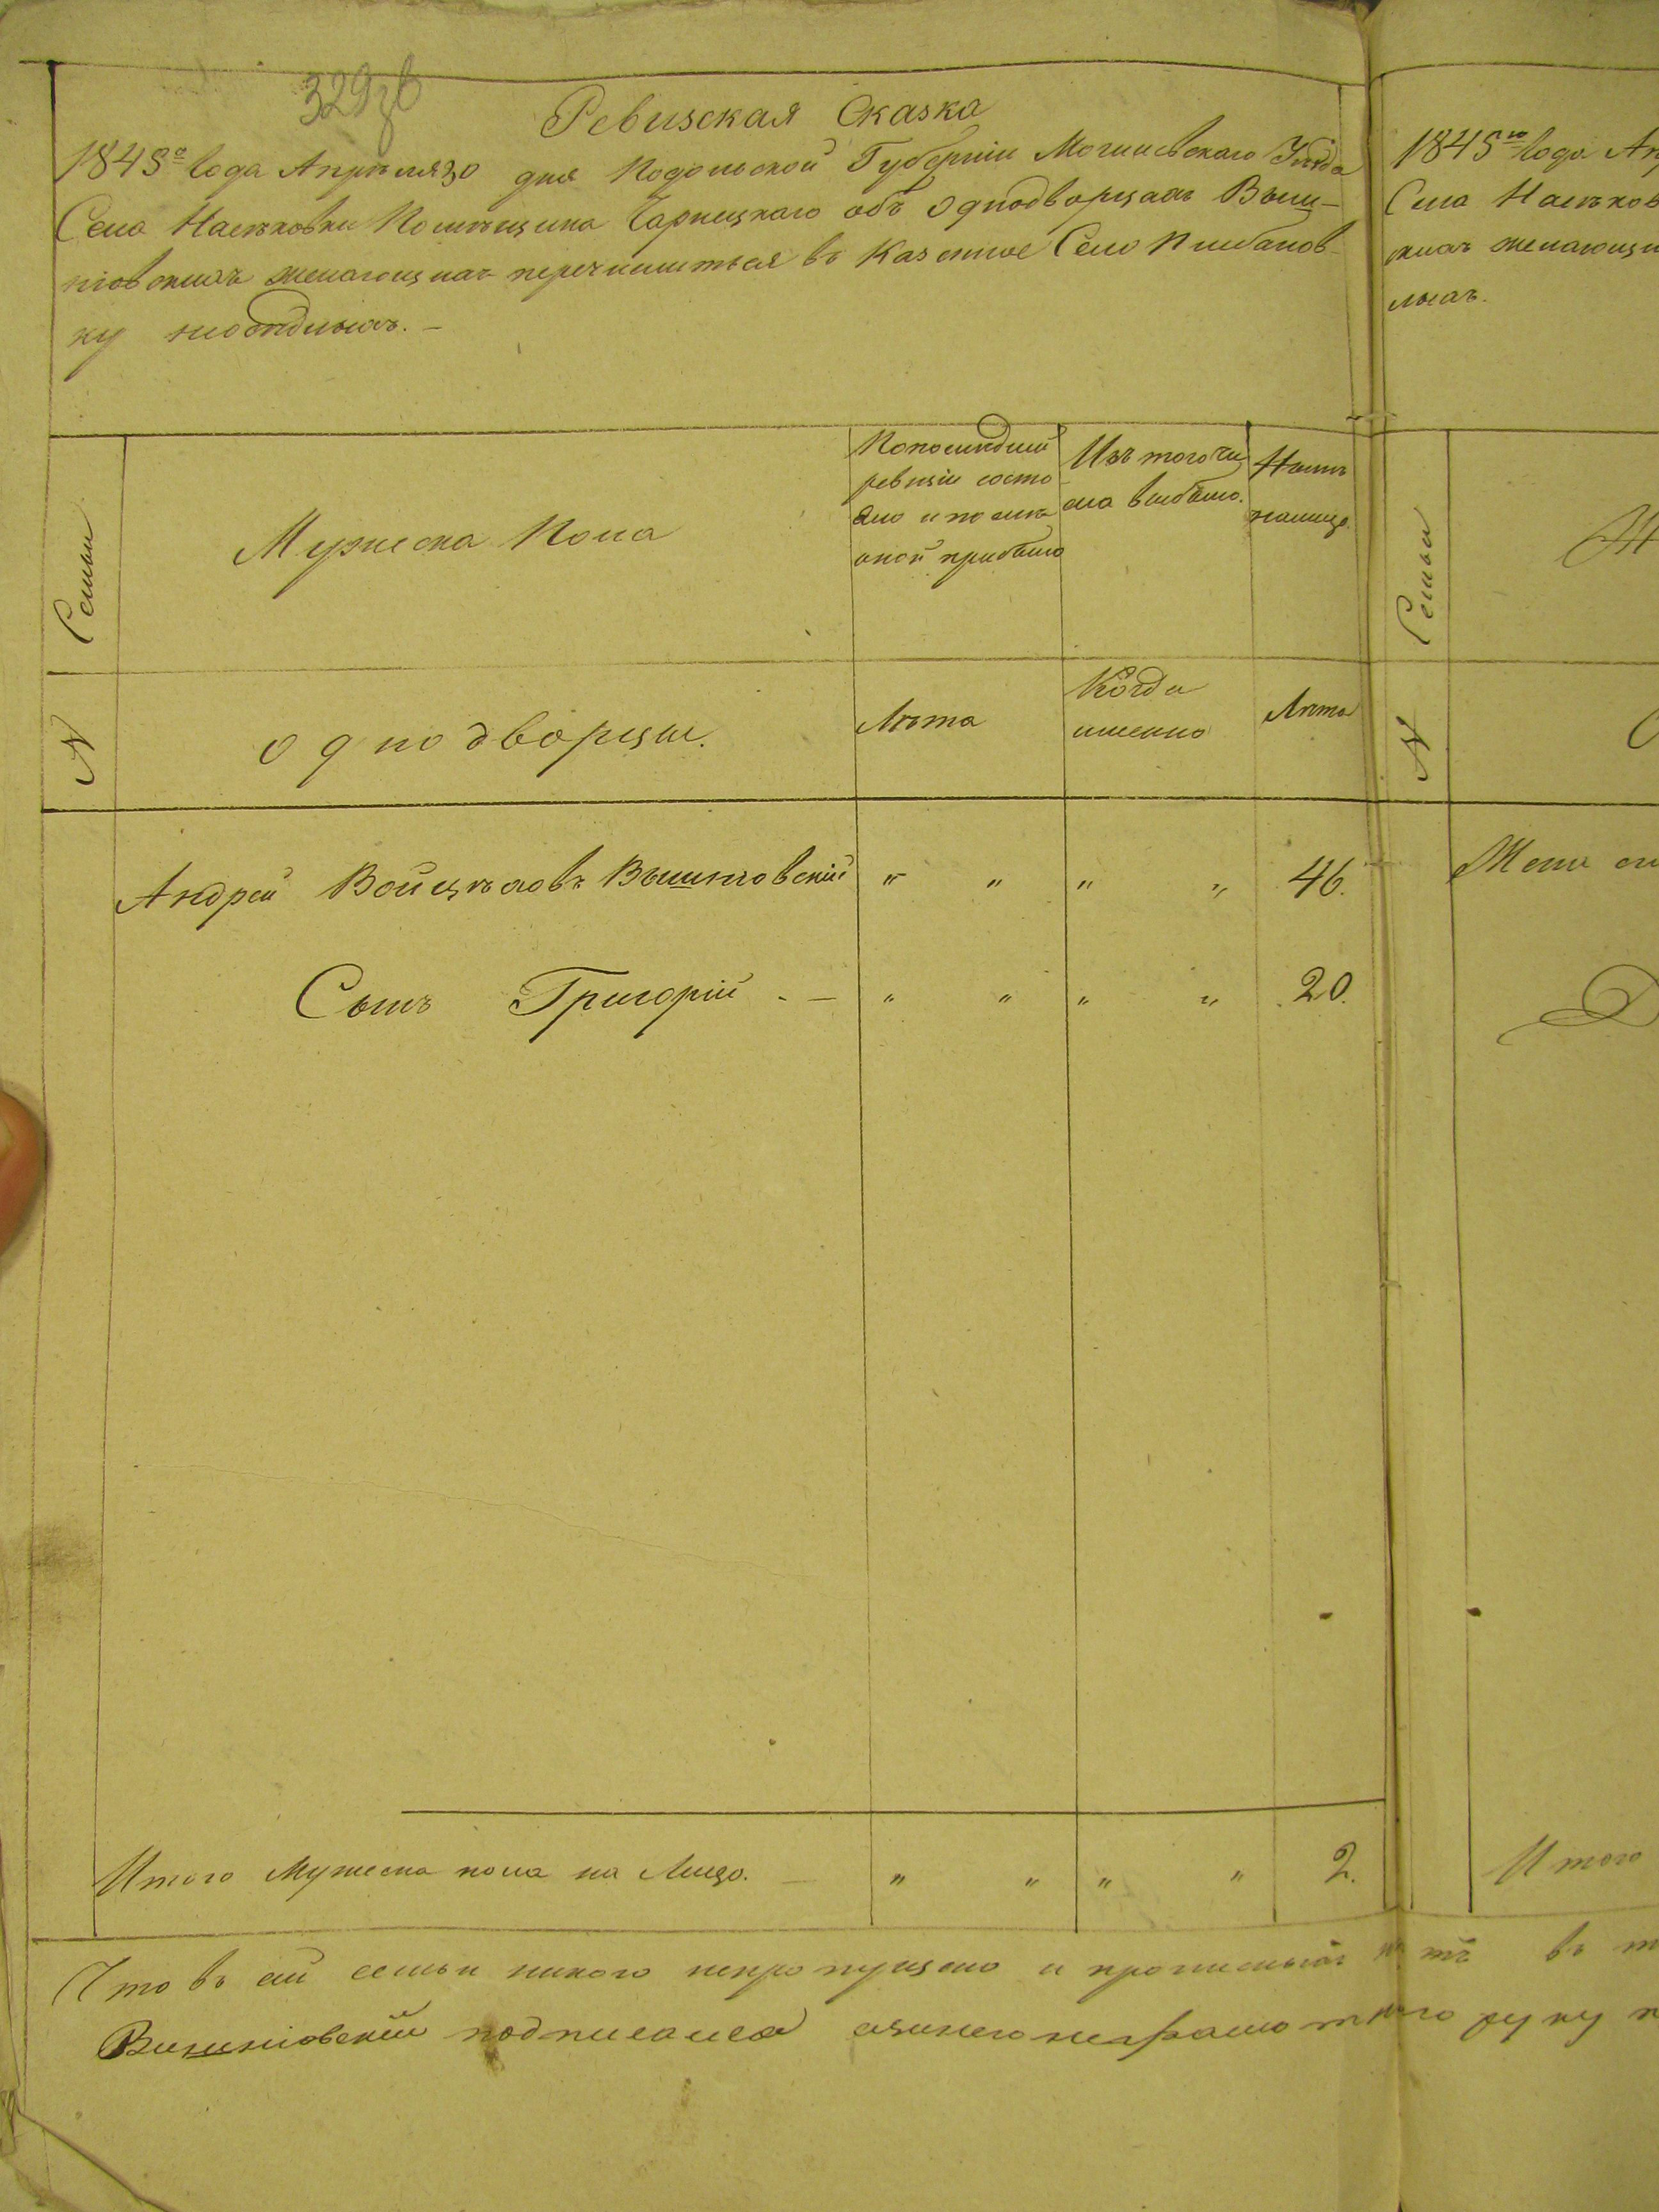 329зв
Ревизская Сказка
1845го года Апреля 30 дня Подольской Губернии Могилевского Уезда
Села Наславки Помещика Чарнецкаго объ однодворцахъ Выш-
ніовскихъ желающихъ перечислиться въ Казенное Село
ку
Семьи
Мужеска Пола
По последней
ревизіи состо
яло и после
оной прибыло
Изъ того чи
сла выбыло.
Ныне
налицо
№
однодворцы.
Лѣта
Когда
именно
Лѣта
Андрей Войцѣховъ Вышніовскій " " " " 46.
Сынъ Григорій . — " " " " 20.
Итого Мужеска пола на Лицо. — " " " " 2.
Что въ сей семьи никого непропущено и прописныхъ нѣтъ въ
Вишніовскій подписался неграмотного руку
1845го года Ап
Села
желающи
Семьи
№
Жена
Итого